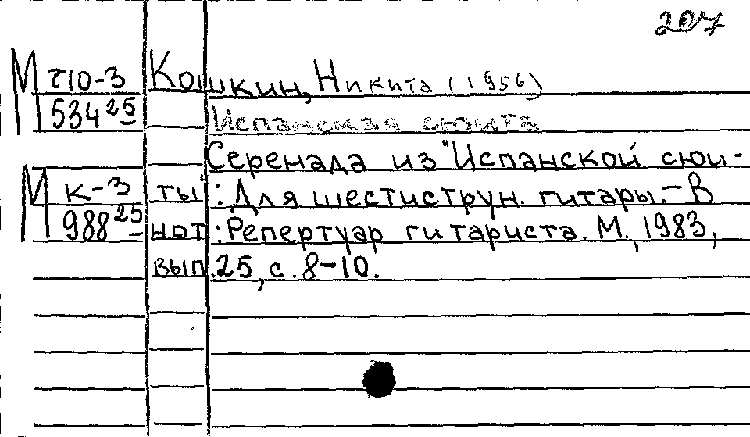 207
М Т10-3 Кошкин, Никита (1956)
534 25 Испанская сюита
Серенада из "Испанской сюи-
М К-3 ты: Для шестиструн. гитары. - В
988 25 нот: Репертуар гитариста. М., 1983,
вып 25, с. 8-10.